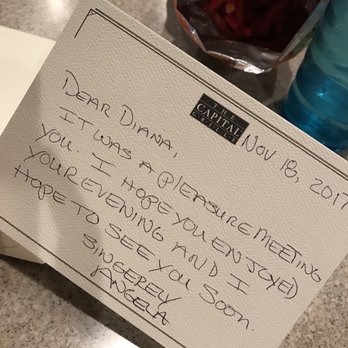 THE
CAPITAL
GRILLE
NOV 18, 2017
DEAR DIANA,
IT WAS A PLEASURE MEETING
YOU. I HOPE YOU ENJOYED
YOUR EVENING AND I
HOPE TO SEE YOU SOON.
SINGERELY
ANGELA